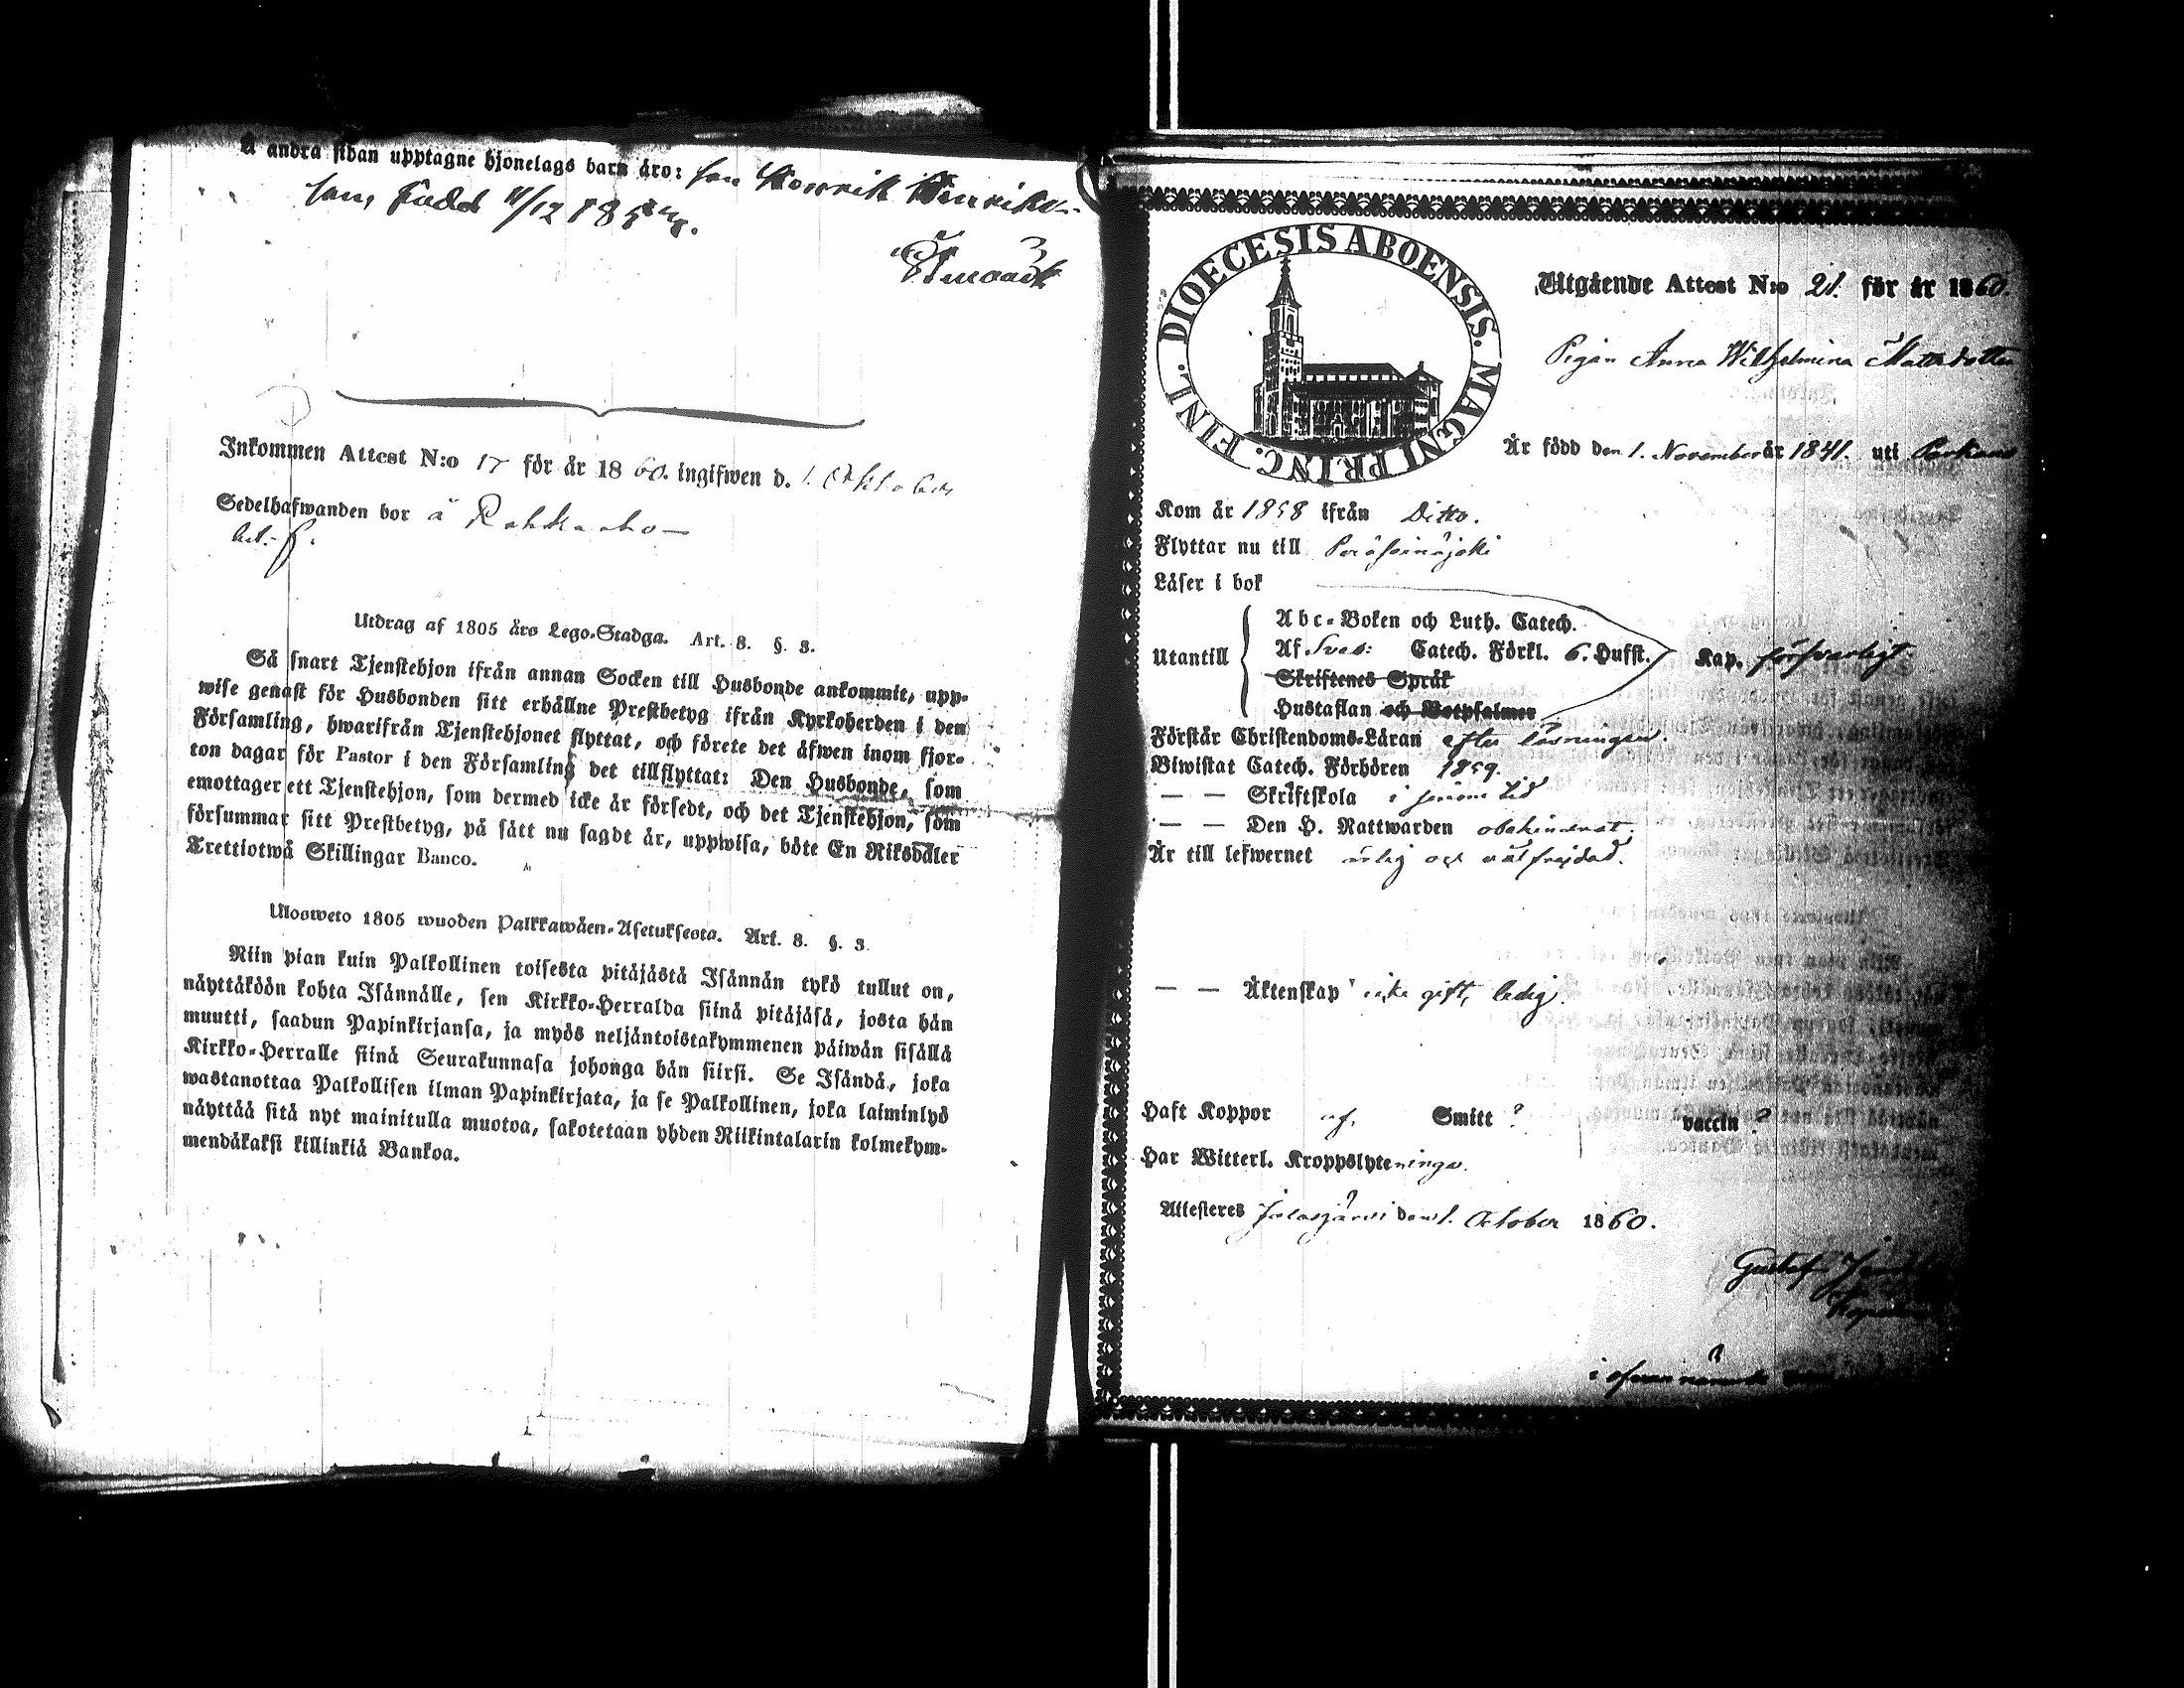 Å andra sidan upptagne hjonelags barn äro: son Henrik Henriks-
son, född 11/12
Inkommen Attest N:o 17 för år 1860. ingifwen d. 1. Oktober
Sedelhafwanden bor å
Utdrag af 1805 års Lego-Stadga. Art. 8. §. 3.
Så snart Tjenstehjon ifrån annan Socken till Husbonde ankommit, upp-
wise genast för Husbonden sitt erhållne Prestbetyg ifrån Kyrkoherden i den
Församling, hwarifrån Tjenstehjonet flyttat, och förete det äfwen inom fjor-
ton dagar för Pastor i den Församling det tillflyttat: Den Husbonde, som
emottager ett Tjenstehjon, som dermed icke är försedt, och det Tjenstehjon, som
försummar sitt Prestbetyg, på sätt nu sagdt är, uppwisa, böte En Riksdaler
Trettiotwå Skillingar Banco.
Ulosweto 1805 wuoden Palkkawäen-Asetuksesta. Art. 8. §. 3.
Niin pian kuin Palkollinen toisesta pitäjästä Isännän tykö tullut on,
näyttäköön kohta Isännälle, sen Kirkko-Herralda siinä pitäjäsä, josta hän
muutti, saadun Papinkirjansa, ja myös neljäntoistakymmenen päiwän sisällä
Kirkko-Herralle siinä Seurakunnasa johonga hän siirsi. Se Isändä, joka
wastanottaa Palkollisen ilman Papinkirjata, ja se Palkollinen, joka laiminlyö
näyttää sitä nyt mainitulla muotoa, sakotetaan yhden Riikintalarin kolmekym-
mendäkaksi killinkiä Bankoa.
DIOECESIS ABOENSIS. MAGNI PRINC. FINL.
Utgående Attest N:o 21. för år 1860.
Pigan Anna Wilhelmina Mattsdotter
Är född den 1. November år 1841. uti Parkano
Kom år 1858 ifrån Ditto.
Flyttar nu till Peräseinäjoki
Läser i bok
Utantill
Abc-Boken och Luth. Catech.
Af Sveb: Catech. Förkl. 6. Hufst. Kap. försvarligt
Skriftenes Språk
Hustaflan och Botpsalmer
Förstår Christendoms-Läran efter läsningen.
Biwistat Catech. Förhören 1859.
— — Skriftskola i sinom tid
— — Den H. Nattwarden obehindrat.
Är till lefwernet ärlig och välfrejdad.
— — Äktenskap icke gift, ledig.
Haft Koppor Smitt ? vaccin ?
Har Witterl. Kroppslyte ninga.
Attesteres Jalasjärvi den 1. October 1860.
Gustaf